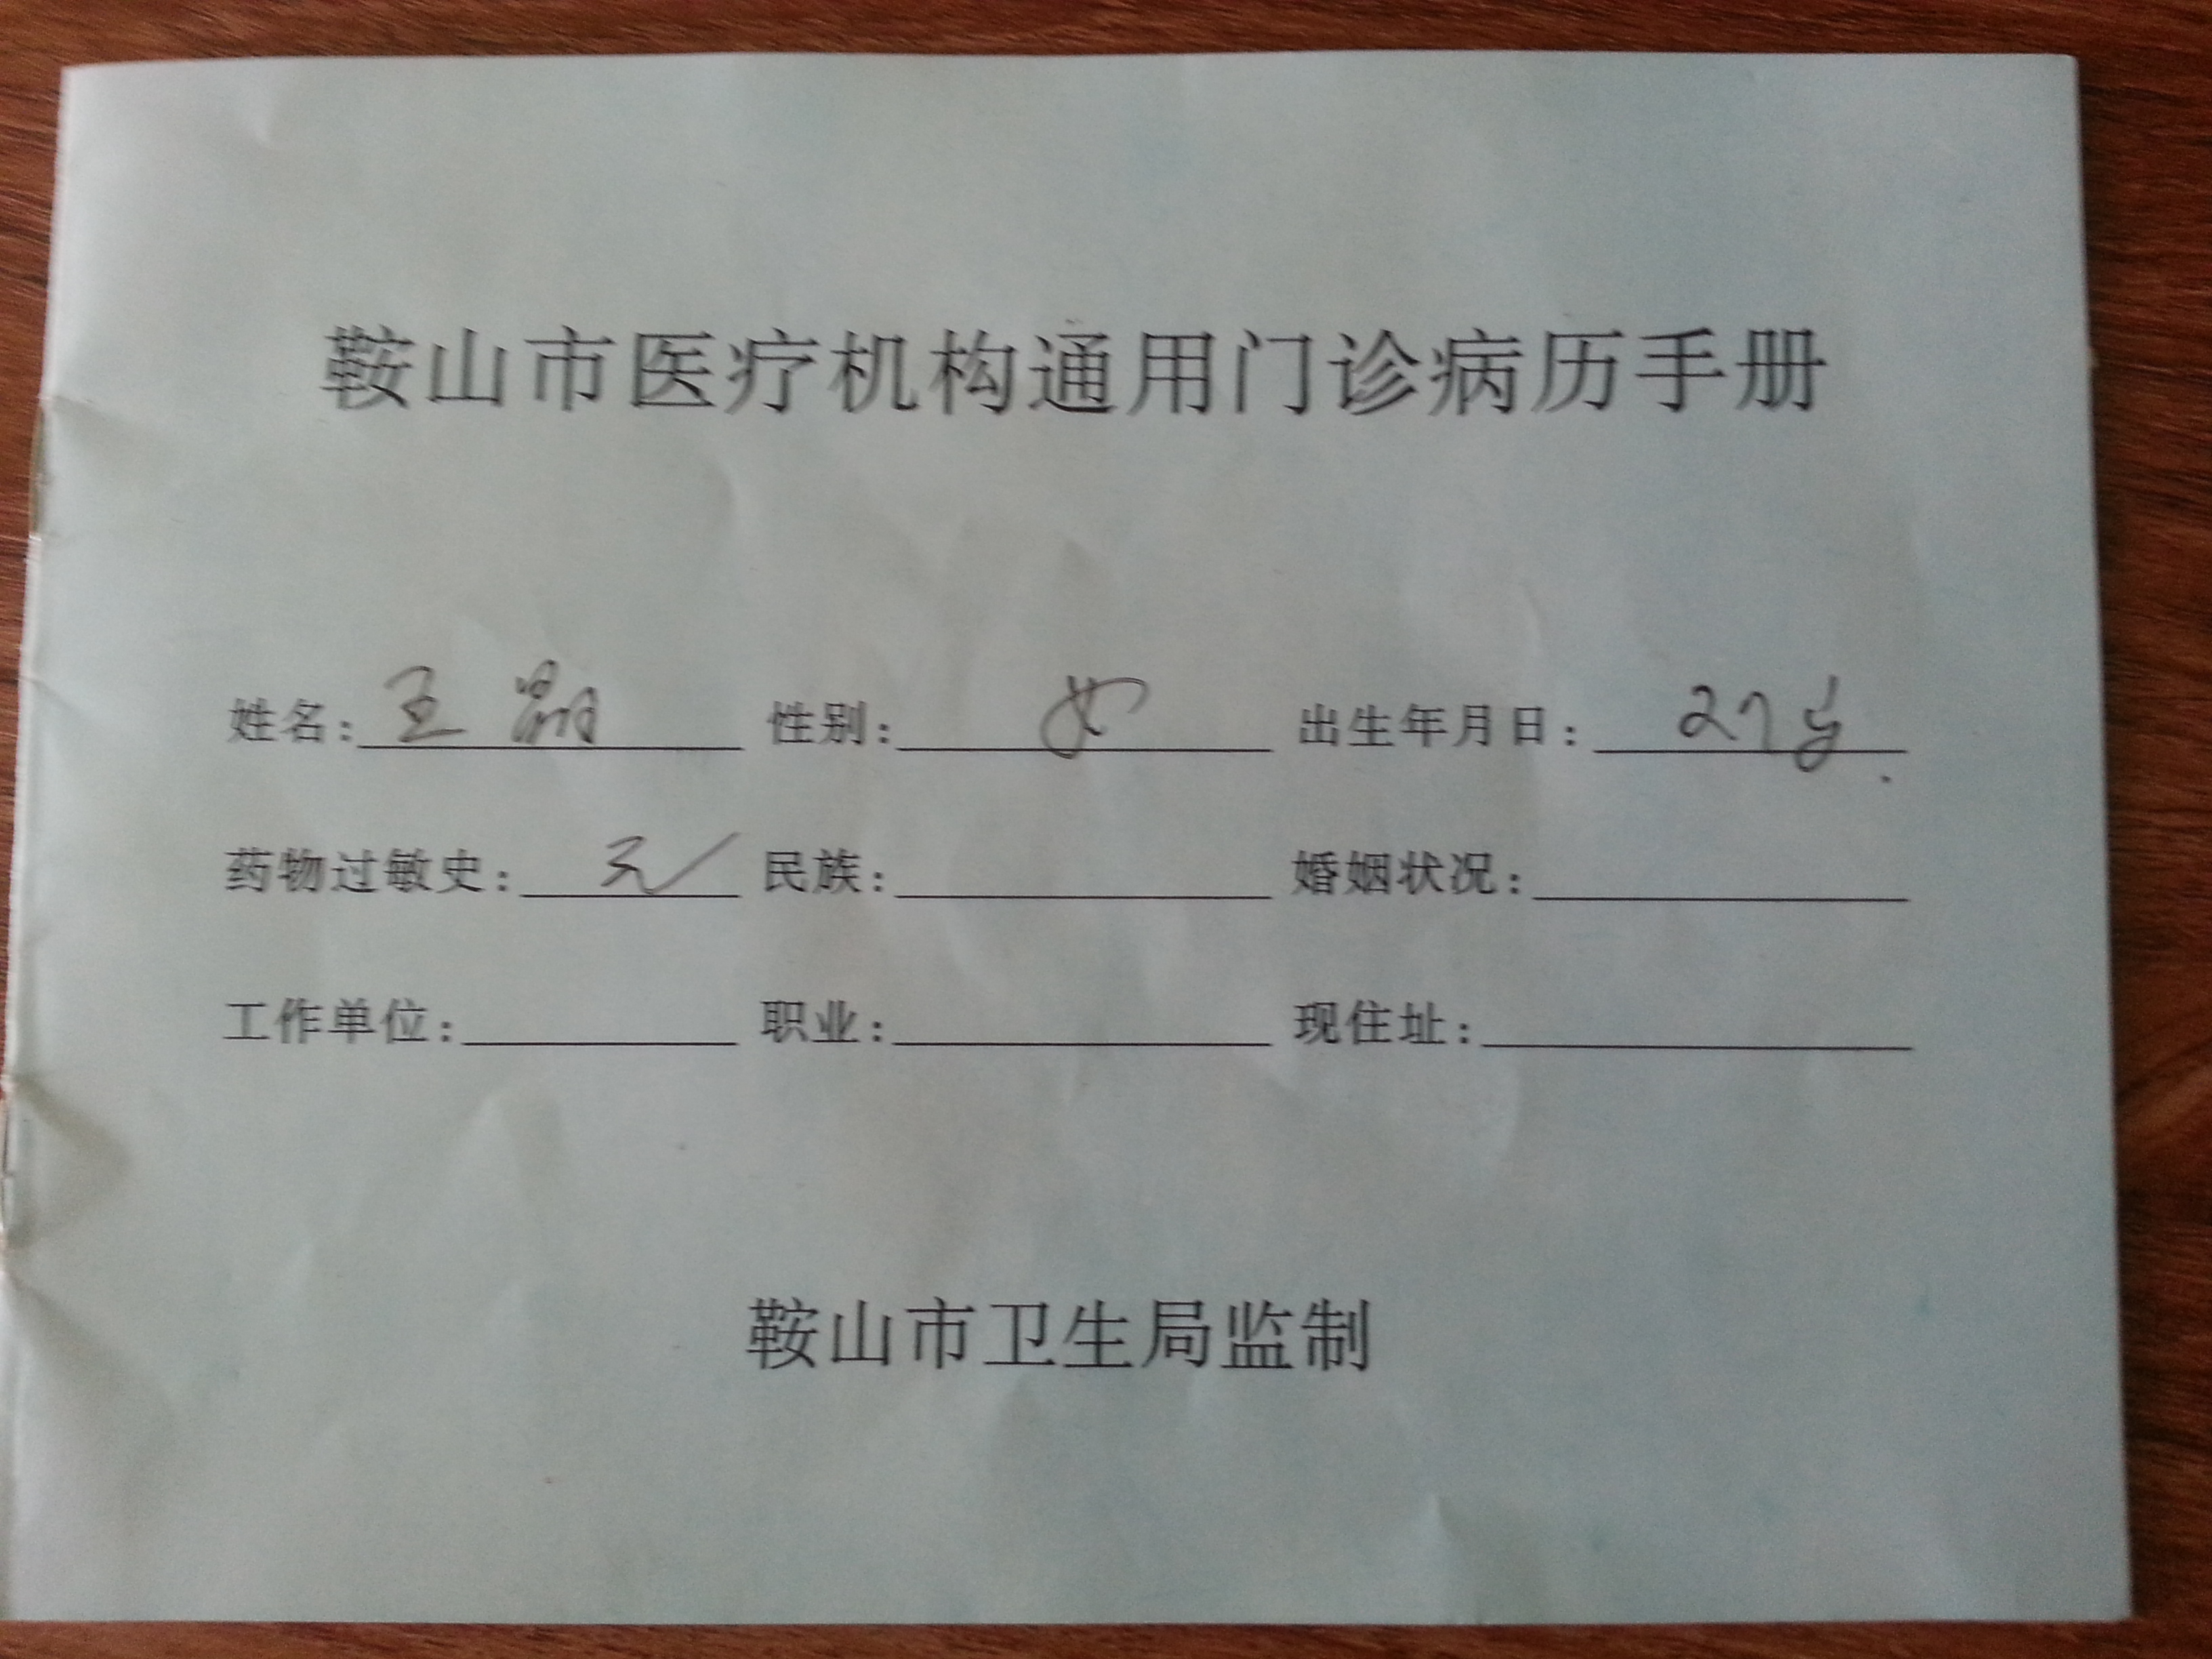 鞍山市医疗机构通用门诊病历手册
姓名：王晶 性别：女 出生年月日：27岁
药物过敏史：无 民族： 婚姻状况：
工作单位： 职业： 现住址：
鞍山市卫生局监制